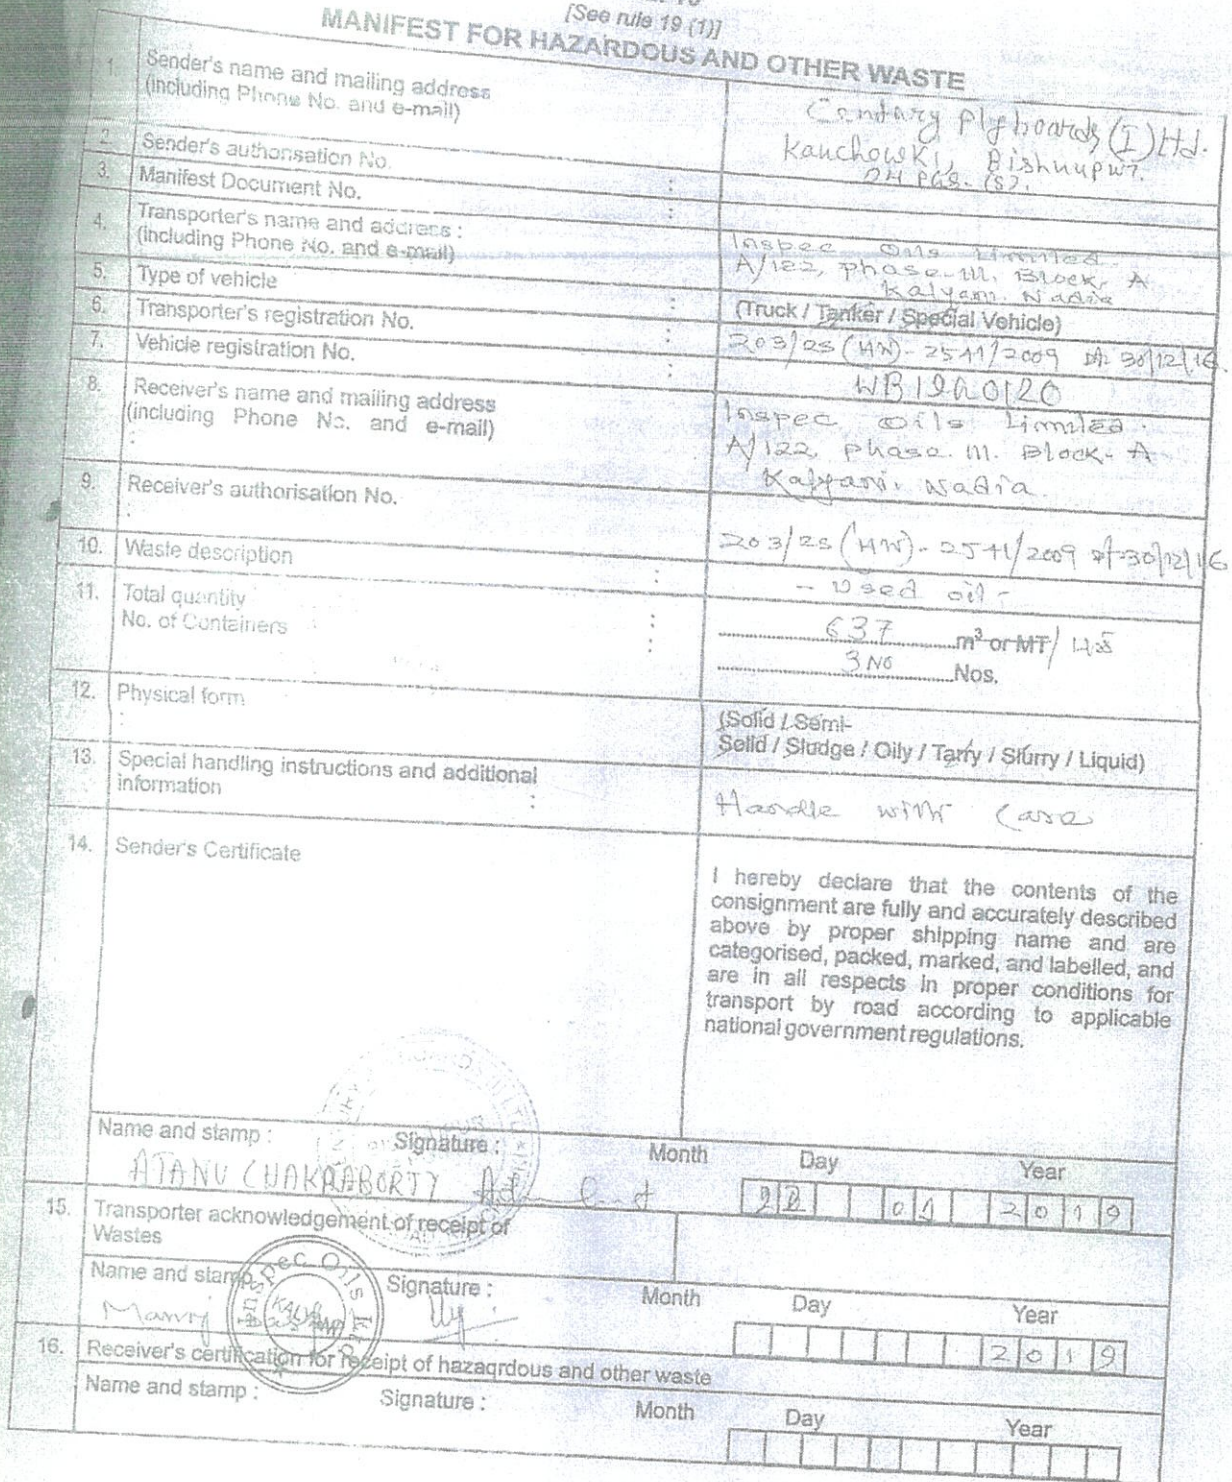 [See rule 19 (1)]
MANIFEST FOR HAZARDOUS AND OTHER WASTE
1. Sender's name and mailing address
(including Phone No. and e-mail)
Century Plyboards (I) Ltd.
Kanchowki, Bishnupur.
24 PGS. (S).
2. Sender's authorisation No. :
3. Manifest Document No. :
4. Transporter's name and address :
(including Phone No. and e-mail)
Inspec Oils Limited.
A/122, Phase-III, Block, A
Kalyani. Nadia
5. Type of vehicle : (Truck / Tanker / Special Vehicle)
6. Transporter's registration No. : 203/2S (HW)- 2541/2009 Dt. 30/12/16.
7. Vehicle registration No. : WB19A0120
8. Receiver's name and mailing address
(including Phone No. and e-mail)
:
Inspec Oils Limited.
A/122, Phase. III. Block- A
Kalyani. Nadia.
9. Receiver's authorisation No.
:
203/2S (HW)- 2541/2009 Dt-30/12/16
10. Waste description : - Used oil -
11. Total quantity : 637 m³ or MT/
No. of Containers : 3 No Nos.
12. Physical form
:
(Solid / Semi-
Solid / Sludge / Oily / Tarry / Slurry / Liquid)
13. Special handling instructions and additional
information :
Handle with Care
14. Sender's Certificate
I hereby declare that the contents of the
consignment are fully and accurately described
above by proper shipping name and are
categorised, packed, marked, and labelled, and
are in all respects in proper conditions for
transport by road according to applicable
national government regulations.
Name and stamp : Signature : Month Day Year
ATANU CHAKRABORTY 2019
15. Transporter acknowledgement of receipt of
Wastes
Name and stamp Signature : Month Day Year
Inspec Oils Ltd
Manoj 2019
16. Receiver's certification for receipt of hazaqrdous and other waste
Name and stamp : Signature : Month Day Year